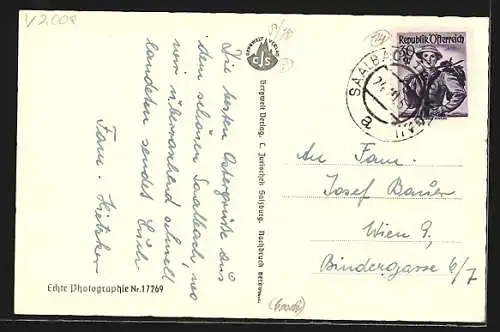 V2.008
Die besten Ostergrüße aus
dem schönen Saalbach, wo
wir überraschend schnell
landeten sendet Euch
Fam.
Echte Photographie Nr. 17269
BERGWELT VERLAG
CJS
Bergwelt Verlag, C. Jurischek Salzburg. Nachdruck verboten.
Republik Österreich
30
SAALBACH
a
An Fam.
Josef Bauer
Wien 9.
Bindergasse 6/7